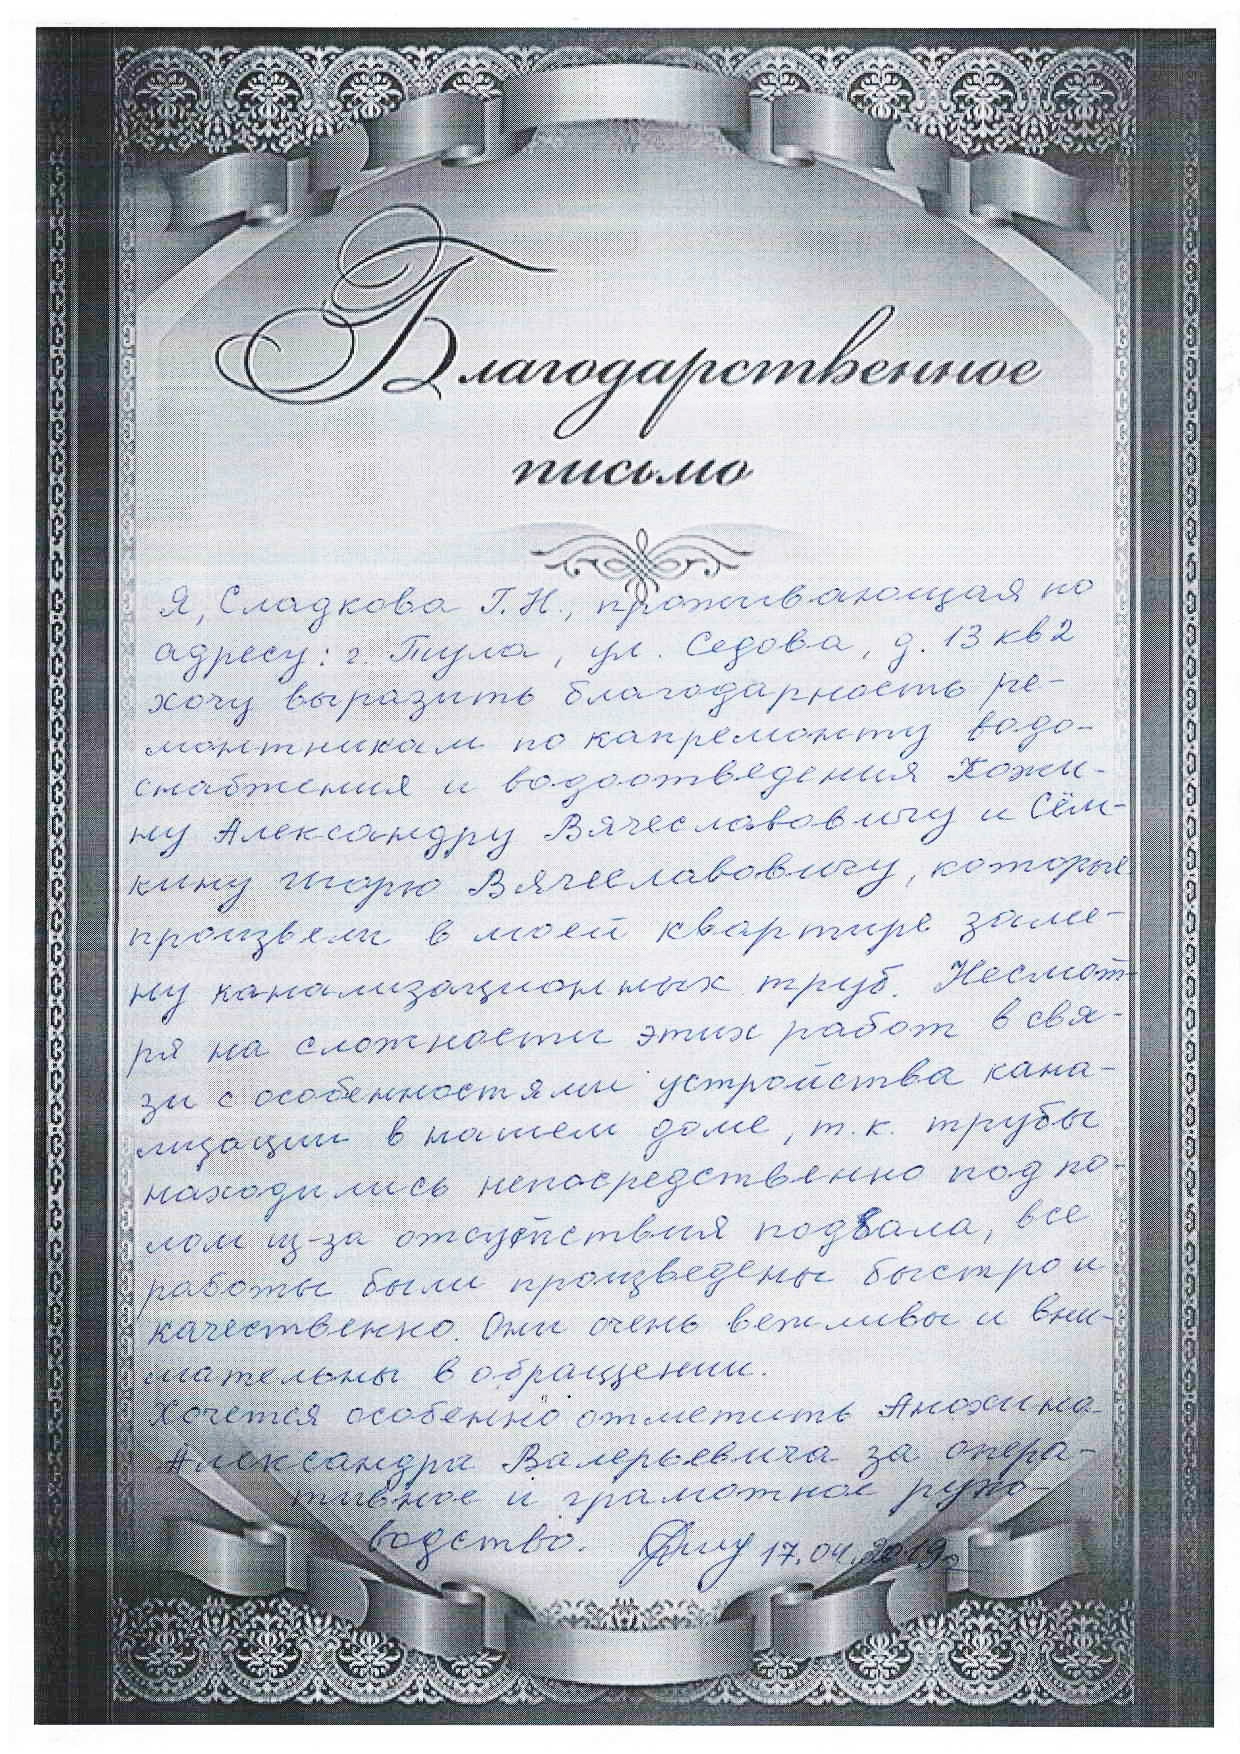 Благодарственное
письмо
Я, Сладкова Г.Н., проживающая по
адресу: г. Тула, ул. Седова, д. 13 кв 2
хочу выразить благодарность ре-
монтникам по капремонту водо-
снабжения и водоотведения Кожи-
ну Александру Вячеславовичу и Сём-
кину Игорю Вячеславовичу, которые
произвели в моей квартире заме-
ну канализационных труб. Несмот-
ря на сложности этих работ в свя-
зи с особенностями устройства кана-
лизации в нашем доме, т.к. трубы
находились непосредственно под по-
лом из-за отсутствия подвала, все
работы были произведены быстро и
качественно. Они очень вежливы и вни-
мательны в обращении.
Хочется особенно отметить Анохина
Александра Валерьевича за опера-
тивное и грамотное руко-
водство. 17.04.2019г